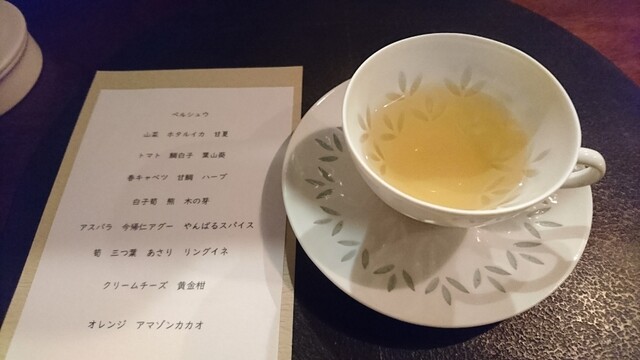 ペルシュウ
山菜 ホタルイカ 甘夏
トマト 鯛白子 葉山葵
春キャベツ 甘鯛 ハーブ
白子筍 熊 木の芽
アスパラ 今帰仁アグー やんばるスパイス
筍 三つ葉 あさり リングイネ
クリームチーズ 黄金柑
オレンジ アマゾンカカオ